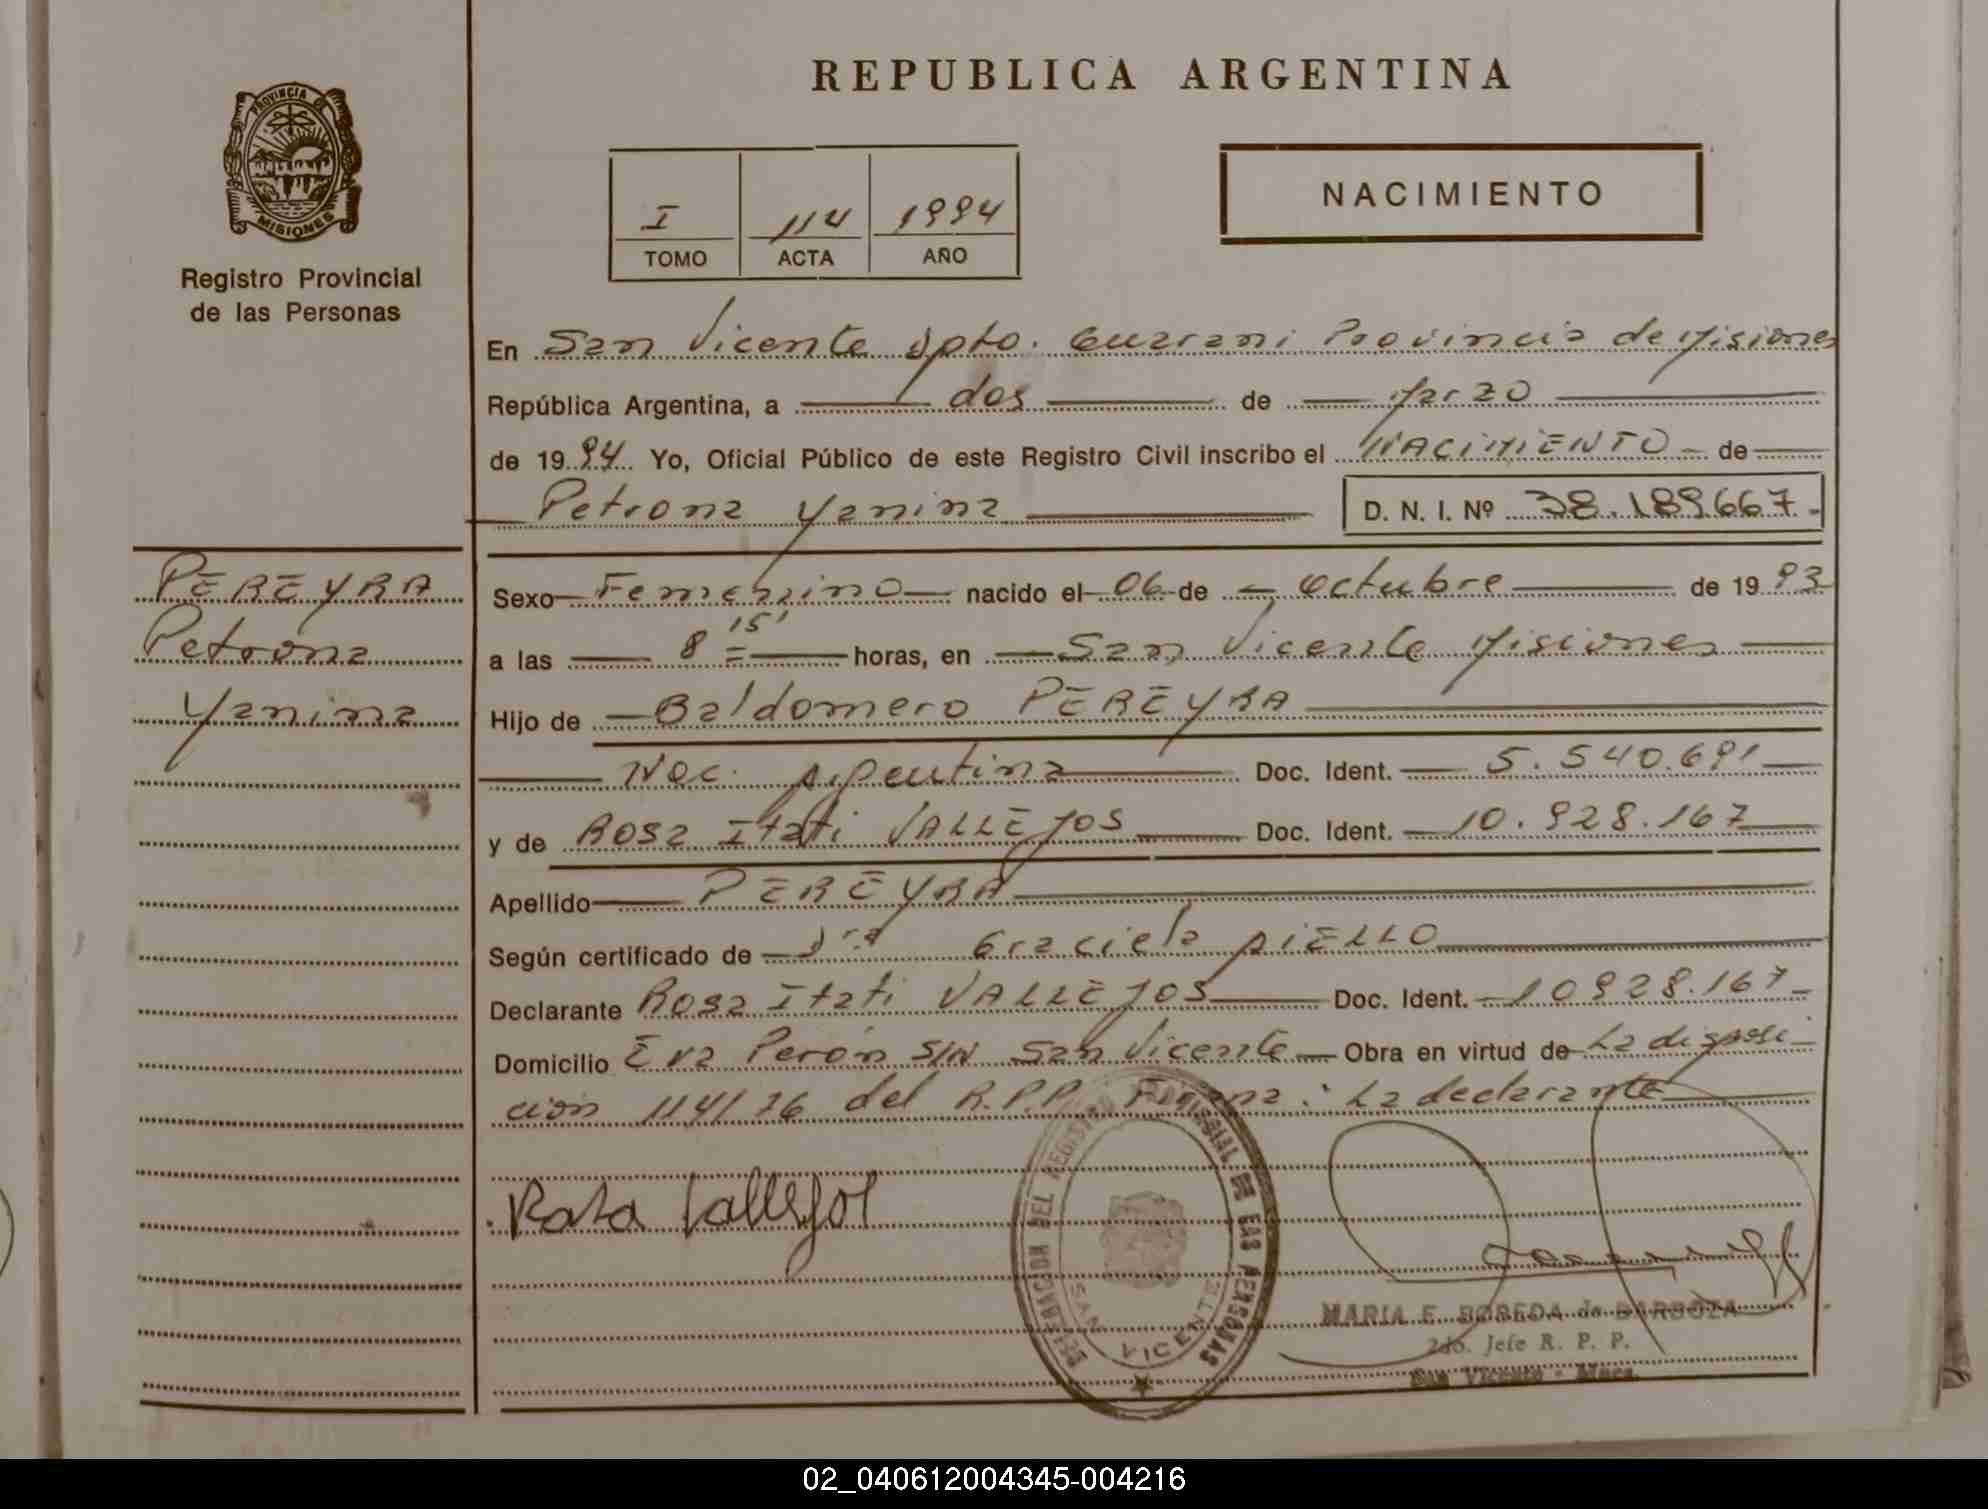 REPUBLICA ARGENTINA
PROVINCIA DE
MISIONES
Registro Provincial
de las Personas
I 114 1994
TOMO ACTA AÑO
NACIMIENTO
En San Vicente Dpto. Guarani Provincia de Misiones
República Argentina, a dos de Marzo
de 1994 Yo, Oficial Público de este Registro Civil inscribo el NACIMIENTO de
Petrona Yanina D. N. I. Nº 38.189667.
PEREYRA
Petrona
Yanina
Sexo Femenino nacido el 06 de Octubre de 1993
a las 8 15' horas, en San Vicente Misiones
Hijo de Baldomero PEREYRA
Nac. Argentina Doc. Ident. 5.540.691
y de Rosa Itati VALLEJOS Doc. Ident. 10.928.167
Apellido PEREYRA
Según certificado de Dra Graciela AIELLO
Declarante Rosa Itati VALLEJOS Doc. Ident. 10928.167
Domicilio Eva Perón S/N San Vicente Obra en virtud de La disposi
cion 114/76 del R.P.P. Firma: La declarante
Rosa Vallejos
DEL REGISTRO PROVINCIAL DE LAS PERSONAS
SAN VICENTE
MARIA E. BOBEDA de BARBOZA
2do. Jefe R. P. P.
San Vicente - Mnes.
02_040612004345-004216